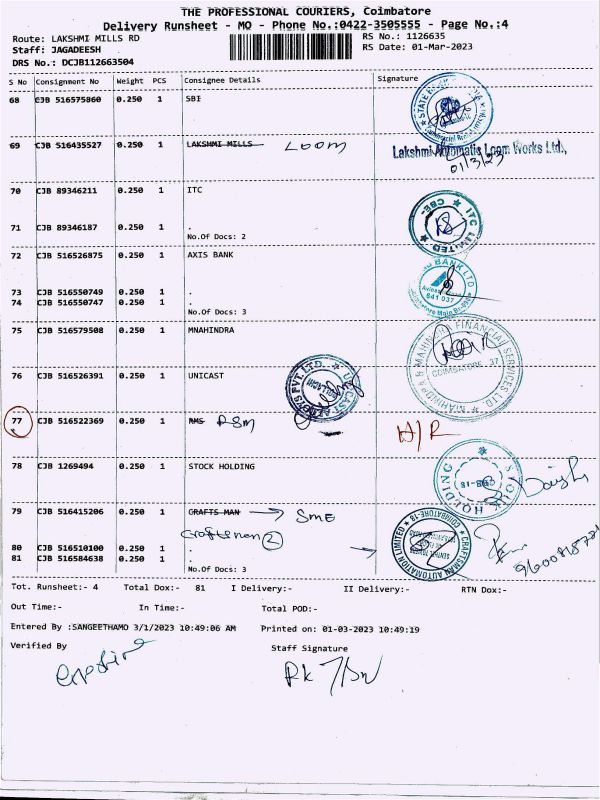 THE PROFESSIONAL COURIERS, Coimbatore
Delivery Runsheet - MO - Phone No.:0422-3505555 - Page No.:4
Route: LAKSHMI MILLS RD
RS No.: 1126635
Staff: JAGADEESH
RS Date: 01-Mar-2023
DRS No.: DCJB112663504
S No Consignment No Weight PCS Consignee Details Signature
68 CJB 516575860 0.250 1 SBI
69 CJB 516435527 0.250 1 LAKSHMI MILLS Loom
Lakshmi Automatic Loom Works Ltd.,
01/3/23
70 CJB 89346211 0.250 1 ITC
ITC LIMITED CBE-
71 CJB 89346187 0.250 1 .
No.Of Docs: 2
72 CJB 516526875 0.250 1 AXIS BANK
BANK LTD
641 037
73 CJB 516550749 0.250 1 .
74 CJB 516550747 0.250 1 .
No.Of Docs: 3
75 CJB 516579508 0.250 1 MNAHINDRA
MAHINDRA & MAHINDRA FINANCIAL SERVICES LTD
COIMBATORE 37
76 CJB 516526391 0.250 1 UNICAST
77 CJB 516522369 0.250 1 RMS RSM
H/R
78 CJB 1269494 0.250 1 STOCK HOLDING
HOLDING
79 CJB 516415206 0.250 1 CRAFTS MAN → SME
craftsman 2
CRAFTSMAN AUTOMATION LIMITED
COIMBATORE-18
80 CJB 516510100 0.250 1 .
81 CJB 516584638 0.250 1 .
No.Of Docs: 3
Tot. Runsheet:- 4 Total Dox:- 81 I Delivery:- II Delivery:- RTN Dox:-
Out Time:- In Time:- Total POD:-
Entered By :SANGEETHAMO 3/1/2023 10:49:06 AM Printed on: 01-03-2023 10:49:19
Verified By Staff Signature